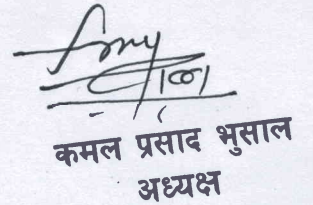 कमल प्रसाद भुसाल
अध्यक्ष